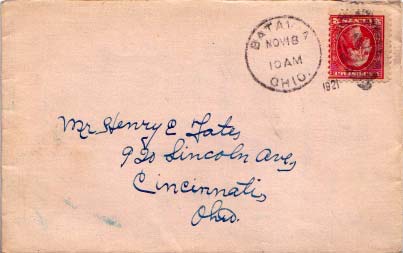 BATAVIA
NOV 18
10 AM
OHIO.
1921
Mr Henry C Yates
920 Lincoln Ave,
Cincinnati,
Ohio.